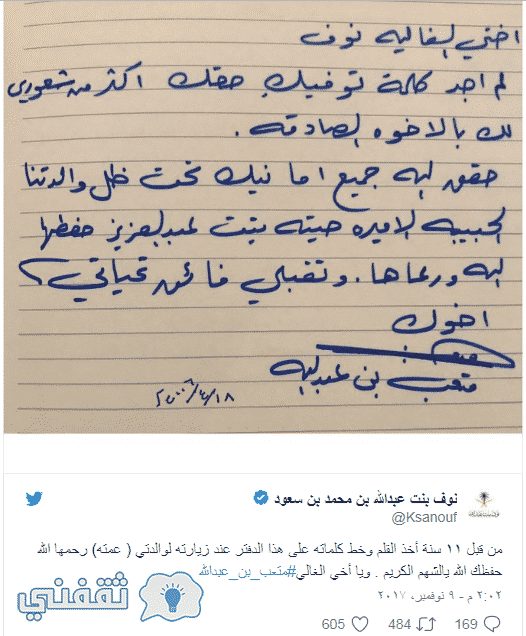 اختي الغاليه نوف
لم اجد كلمة توفيك حقك اكثر من شعوري
لك بالاخوه الصادقه .
حقق الله جميع امانيك تحت ظل والدتنا
الحبيبه الاميره صيته بنت عبدالعزيز حفظها
الله ورعاها . وتقبلي فائق تحياتي ،
اخوك
متعب بن عبدالله
٢٠٠٦/٧/١٨
نوف بنت عبدالله بن محمد بن سعود
@Ksanouf
من قبل ١١ سنة أخذ القلم وخط كلماته على هذا الدفتر عند زيارته لوالدتي ( عمته) رحمها الله
حفظك الله يالشهم الكريم . ويا أخي الغالي#متعب_بن_عبدالله
٢:٠٢ م - ٩ نوفمبر، ٢٠١٧
169 484 605
ثقفني